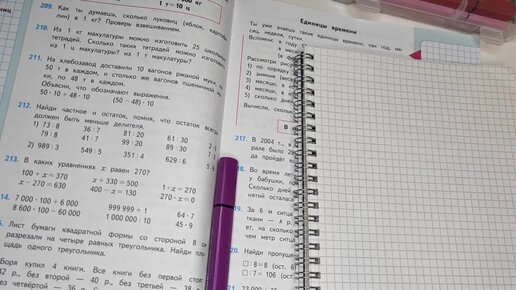 500 кг
1 т = 10 ц
209. Как ты думаешь, сколько луковиц (яблок, картофе-
лин) в 1 кг? Проверь взвешиванием.
210. Из 1 кг макулатуры можно изготовить 25 школьных
тетрадей. Сколько таких тетрадей можно изготовить
из 1 ц макулатуры? из 1 т макулатуры?
211. На хлебозавод доставили 10 вагонов ржаной муки, по
50 т в каждом, и столько же вагонов пшеничной му-
ки, по 48 т в каждом.
Объясни, что обозначают выражения.
50 · 10 + 48 · 10 (50 — 48) · 10
212. Найди частное и остаток, помня, что остаток всегда
должен быть меньше делителя.
1) 73 : 8 36 : 7 81 : 20 61 : 30
79 : 8 41 : 7 99 : 20 89 : 30
2) 989 : 3 549 : 5 351 : 4 629 : 6
213. В каких уравнениях x равен 270?
100 + x = 370 x + 330 = 500 1 · x = 270
x − 270 = 630 400 − x = 130 270 · x = 0
14. 7 000 · 100 + 6 000 999 999 + 1 64 · 7
8 600 · 100 − 60 000 1 000 000 : 10 45 · 9
Лист бумаги квадратной формы со стороной 8
разрезали на четыре равных треугольника. Найди пло-
щадь одного треугольника.
Боря купил 4 книги. Все книги без первой стоят
42 р., без второй — 40 р., без третьей — 38 р.,
без четвёртой — 36 р.
Единицы времени
Ты уже знаешь такие единицы времени, как год, ме-
сяц, неделя, сутки,
Вспомни:
в году 1
в месяц
Рассмотри
1) по порядку
2) зимние (весен
3) месяцы, в к
4) месяцы, в к
5) сколько дне
Вычисли, сколько
217. В 2004 г., в
рале было 29
да пройдёт е
18. Во время лет
у бабушки, по
Сколько дней
нятий осталас
19. За 6 м ситца
ткани — 4 р.
ет, на скольк
чем метр ситца
20. Найди пропущен
□ : 8 = 8 (ост. 6)
□ : 7 = 106 (ост.
21.